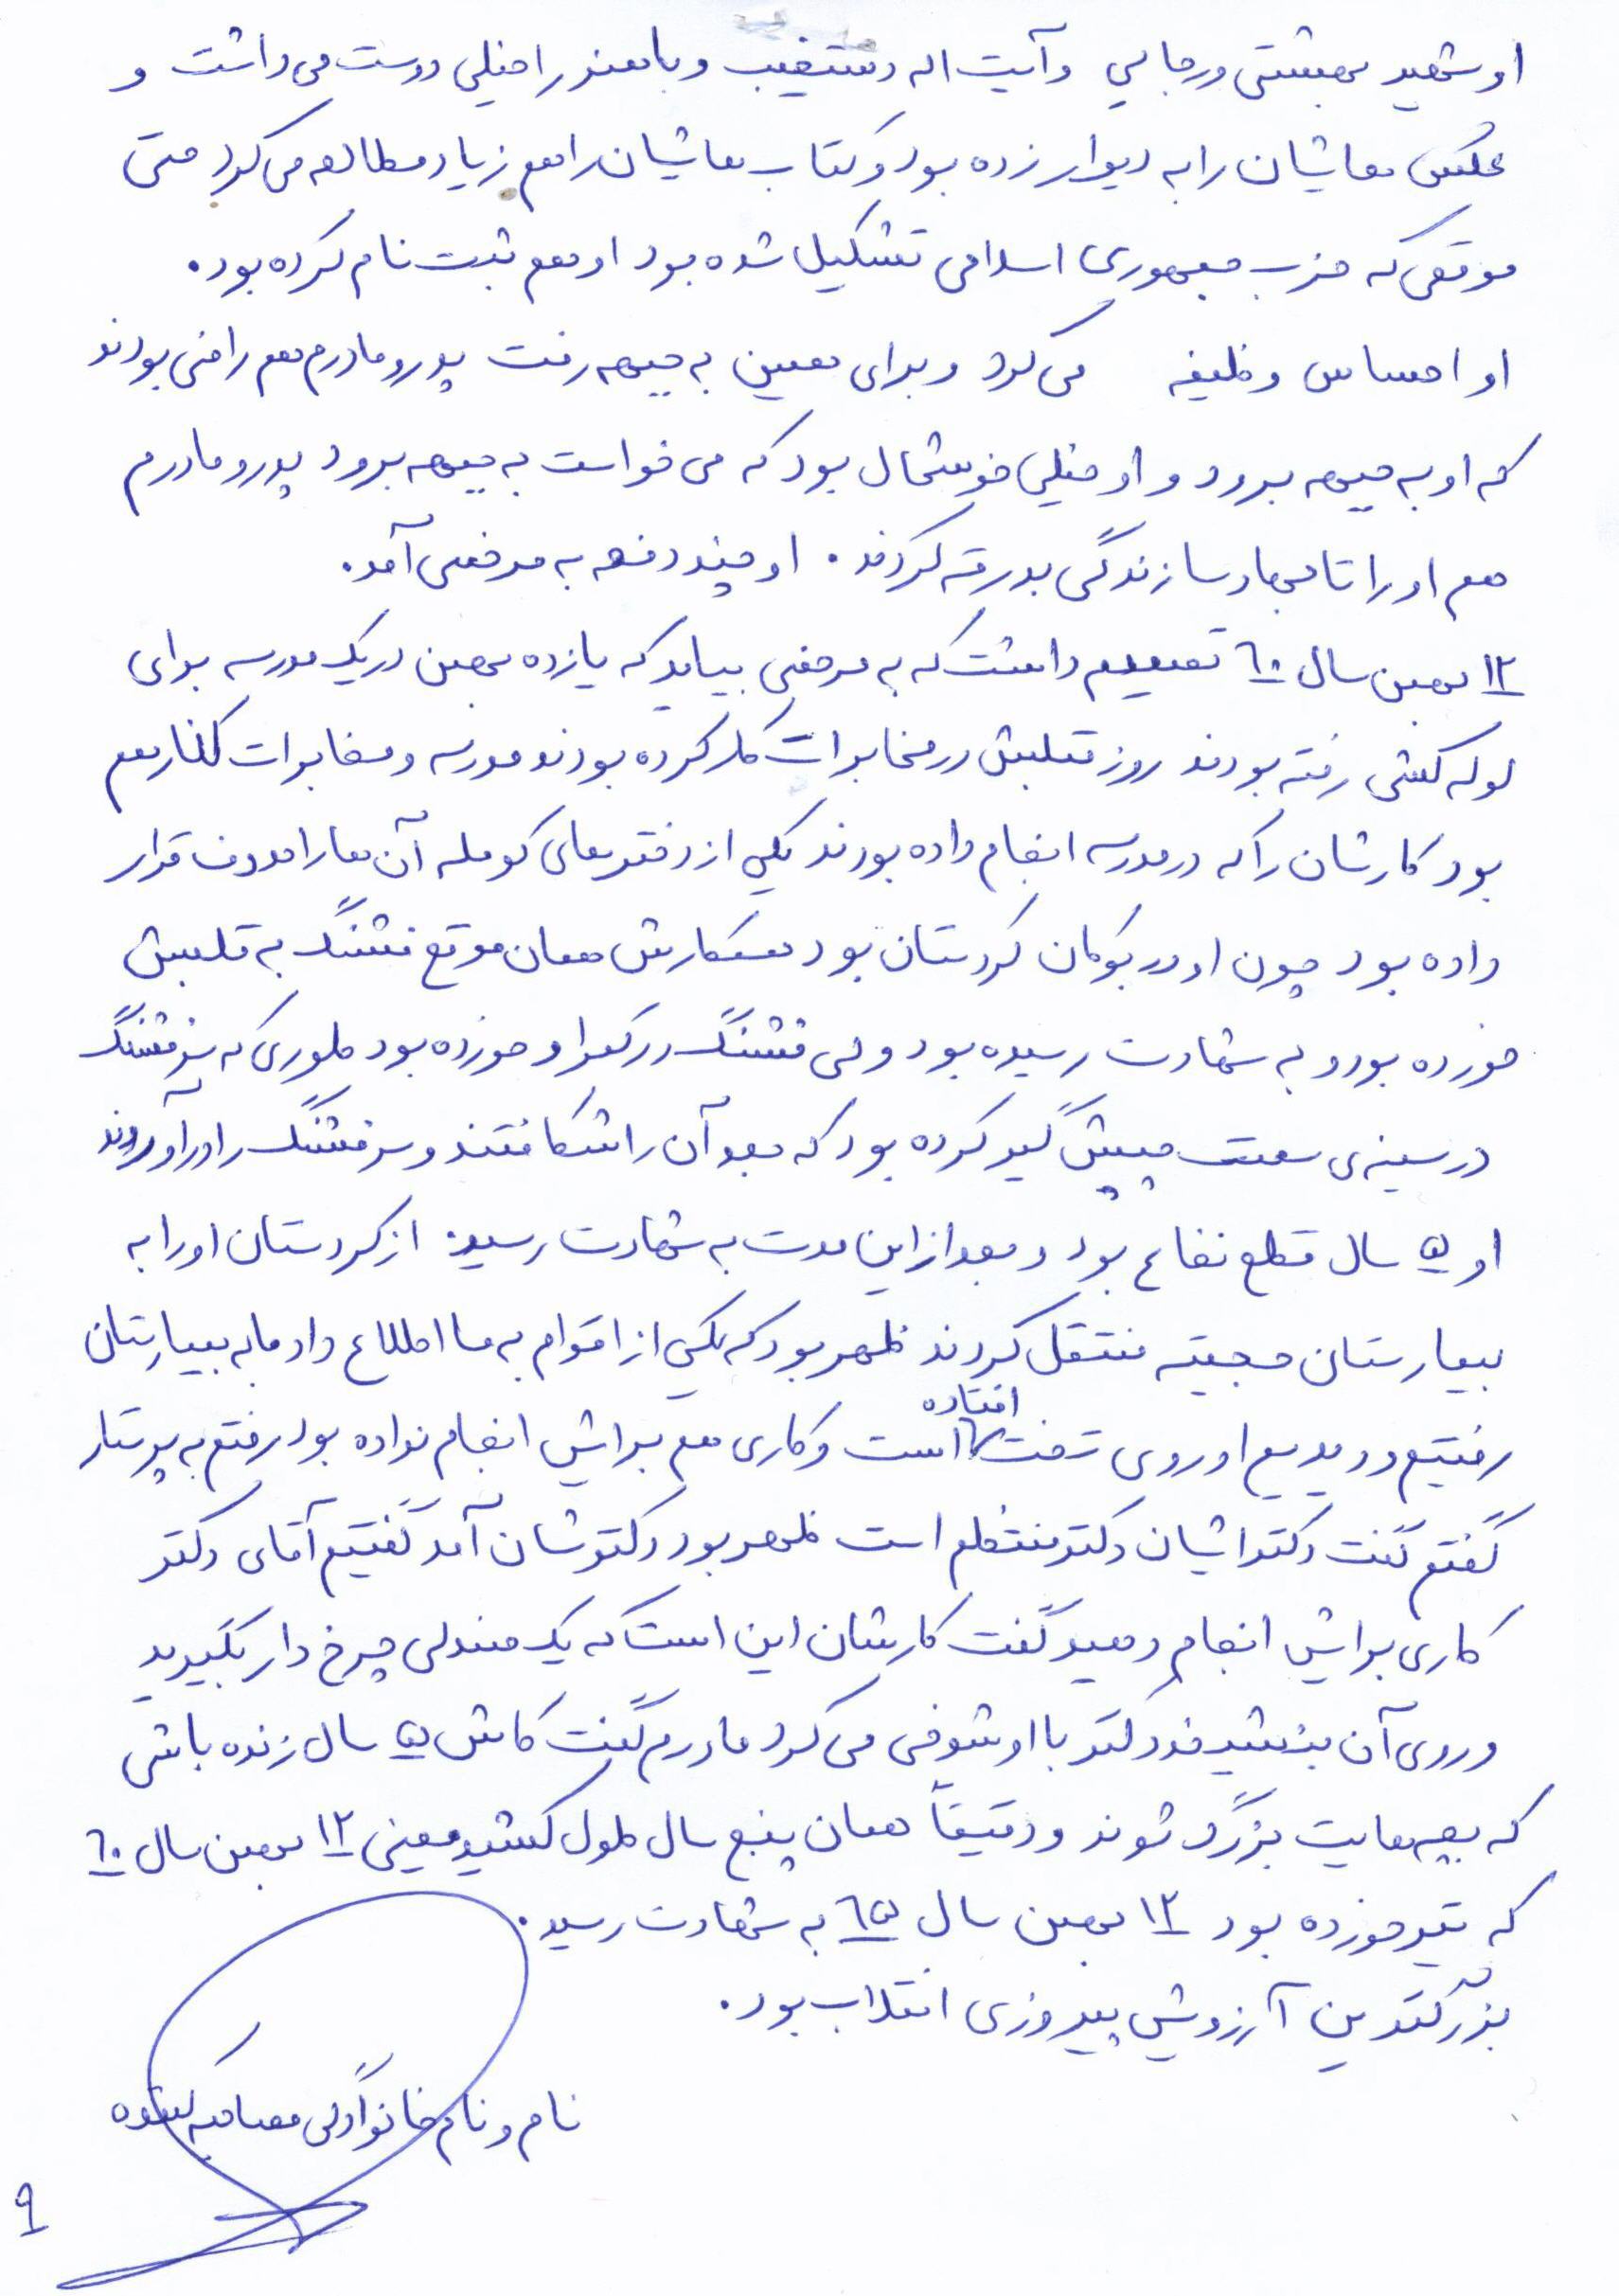 او شهید بهشتی و رجایی و آیت اله دستغیب و باهنر را خیلی دوست می داشت و
عکس هایشان را به دیوار زده بود و کتاب هایشان را هم زیاد مطالعه می کرد حتی
موقعی که حزب جمهوری اسلامی تشکیل شده بود او هم ثبت نام کرده بود.
او احساس وظیفه می کرد و برای همین به جبهه رفت پدر و مادرم هم راضی بودند
که او به جبهه برود و او خیلی خوشحال بود که می خواست به جبهه برود پدر و مادرم
هم او را تا جهاد سازندگی بدرقه کردند. او چند دفعه به مرخصی آمد.
۱۲ بهمن سال ۶۰ تصمیم داشت که به مرخصی بیاید که یازده بهمن در یک مدرسه برای
لوله کشی رفته بودند روز قبلش در مخابرات کار کرده بودند مدرسه و مخابرات کنار هم
بود کارشان را که در مدرسه انجام داده بودند یکی از دفترهای کومله آن ها را هدف قرار
داده بود چون او در بوکان کردستان بود همکارش همان موقع فشنگ به قلبش
خورده بود و به شهادت رسیده بود ولی فشنگ در کمر او خورده بود طوری که سر فشنگ
در سینه ی سمت چپش گیر کرده بود که بعد آن را شکافتند و سر فشنگ را در آوردند
او ۵ سال قطع نخاع بود و بعد از این مدت به شهادت رسید. از کردستان او را به
بیمارستان حجتیه منتقل کردند ظهر بود که یکی از اقوام به ما اطلاع داد ما به بیمارستان
رفتیم و دیدیم او روی تخت افتاده است و کاری هم برایش انجام نداده بود رفتم به پرستار
گفتم گفت دکتر ایشان دکتر منتظم است ظهر بود دکترشان آمد گفتیم آقای دکتر
کاری برایش انجام دهید گفت کارشان این است که یک صندلی چرخ دار بگیرید
و روی آن بنشیند دکتر با او شوخی می کرد مادرم گفت کاش ۵ سال زنده باشی
که بچه هایت بزرگ شوند و دقیقاً همان پنج سال طول کشید یعنی ۱۲ بهمن سال ۶۰
که تیر خورده بود ۱۲ بهمن سال ۶۵ به شهادت رسید.
بزرگترین آرزویش پیروزی انقلاب بود.
نام و نام خانوادگی مصاحبه کننده
۹